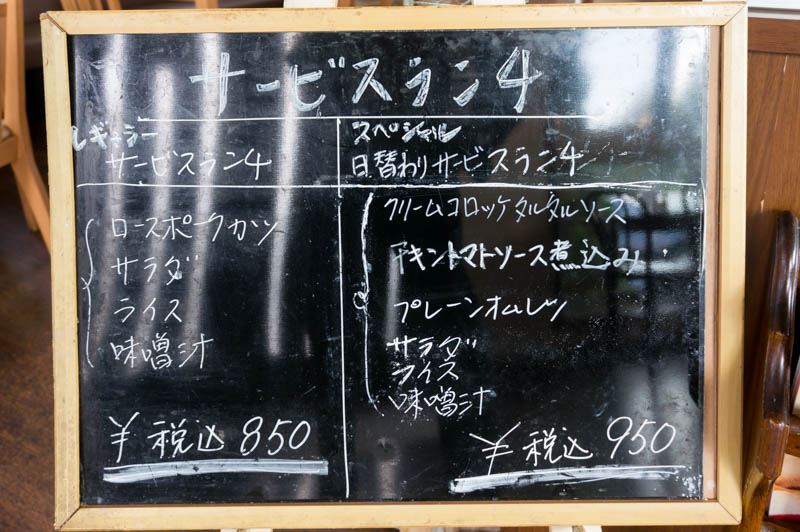 サービスラン4
レギュラー
サービスラン4
ロースポークカツ
サラダ
ライス
味噌汁
¥ 税込 850
スペシャル
日替わりサービスラン4
クリームコロッケタルタルソース
チキントマトソース煮込み
プレーンオムレツ
サラダ
ライス
味噌汁
¥ 税込 950